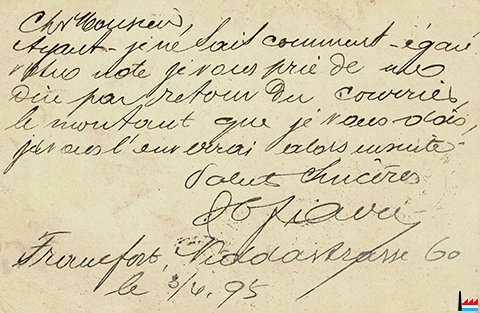 Cher Monsieur,
Ayant - je ne sais comment - égaré
votre note je vous prie de me
dire par retour du courrier,
le montant que je vous dois,
je vous l'enverrai alors ensuite.
Saluts sincères
Francfort, Niddastrasse 60
le 3/4. 95